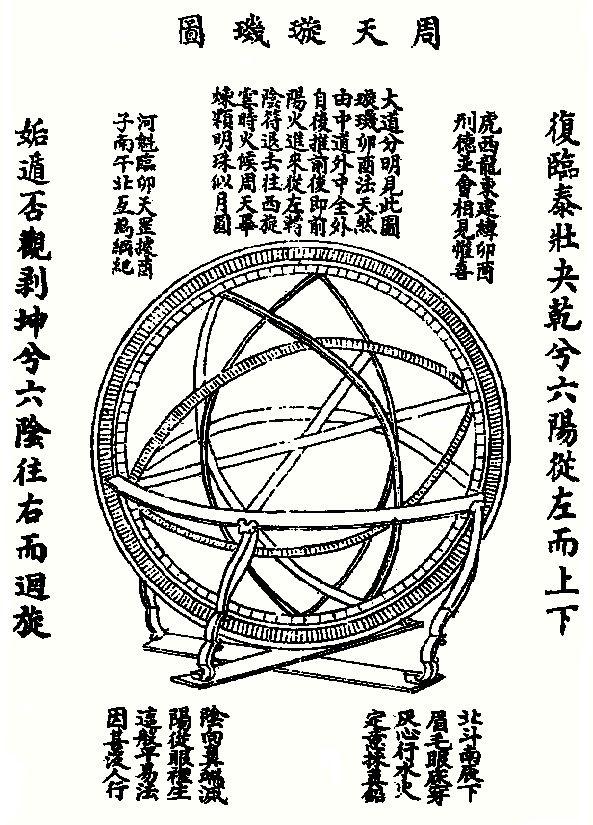 周天璇璣圖
復臨泰壯夬乾兮六陽從左而上下
虎西龍東建緯卯酉
刑德並會相見懽喜
大道分明見此圖
璇璣卯酉法天然
由中道外中全外
自後推前後即前
陽火進來從左轉
陰符退去往西旋
霎時火候周天畢
煉顆明珠似月圓
河魁臨卯天罡據酉
子南午北互為綱紀
姤遁否觀剝坤兮六陰往右而迴旋
北斗南辰下
眉毛眼睫穿
灰心行水火
定意採真鉛
陰向鼻端滅
陽從眼裡生
這般平易法
因甚沒人行